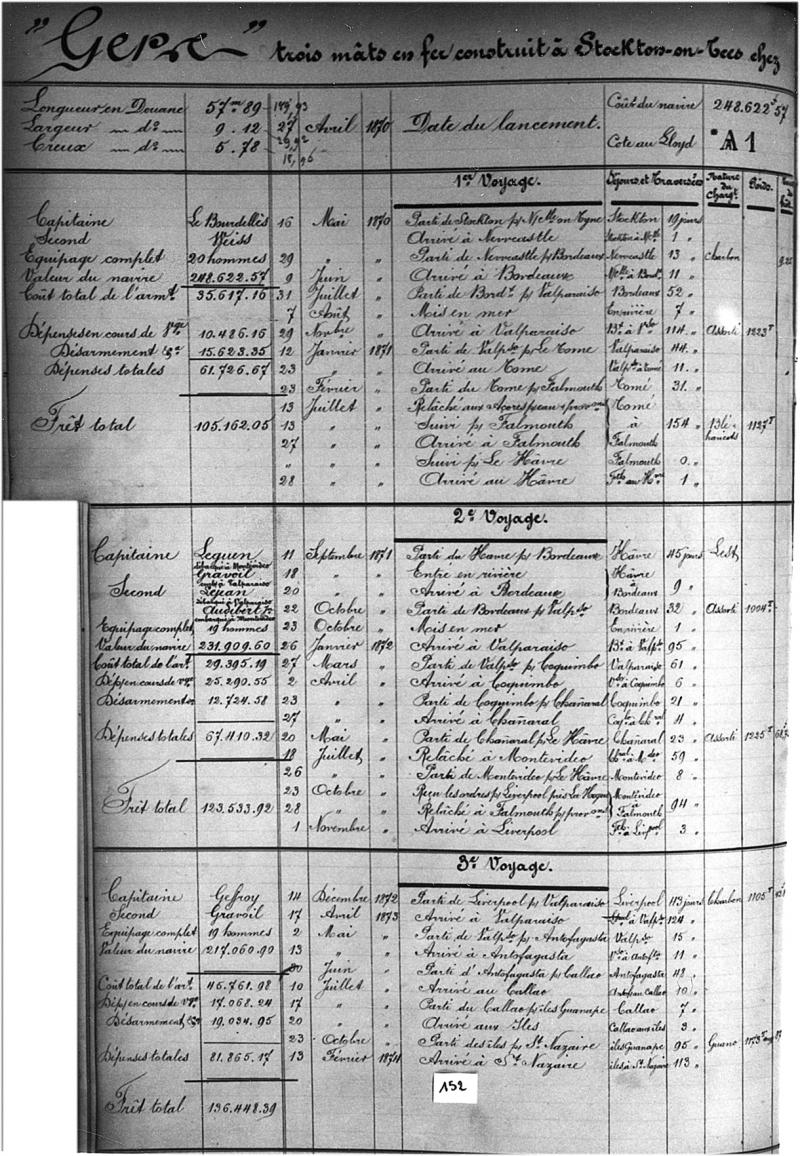 "Gers" trois mâts en fer construit à Stockton-on-Tees chez
Longueur en Douane 57.m 89 Coût du navire 248.622.f 57
Largeur — do — 9. 12 27 Avril 1870 Date du lancement.
Creux — do — 5. 78 Cote au Lloyd A 1
1er Voyage. Séjours et Traversées Nature du Chargt Poids.
Capitaine Le Bourdellès 16 Mai 1870 Parti de Stockton pr Nclle on Tyne Stockton 19 jours
Second Weiss Arrivé à Newcastle 1 "
Equipage complet 20 hommes 29 " " Parti de Newcastle pr Bordeaux Newcastle 13 " Charbon
Valeur du navire 248.622.57 9 Juin " Arrivé à Bordeaux Nclle à Bordx 11 "
Coût total de l'armt 35.617.16 31 Juillet " Parti de Bordx pr Valparaiso Bordeaux 52 "
7 Août " Mis en mer En rivière 7 "
Dépenses en cours de Vge 10.486.16 29 Novbre " Arrivé à Valparaiso Bx à Vso 114 " Assorti 1223T
Désarmement &a 15.623.35 12 Janvier 1871 Parti de Valpso pr Le Tome Valparaiso 44 "
Dépenses totales 61.726.67 23 " " Arrivé au Tome Valpso à Tomé 11 "
23 Février " Parti du Tome pr Falmouth Tomé 31. "
13 Juillet " Relâché aux Açores peau & provons Tomé
Frêt total 105.162.05 13 " " Suivi pr Falmouth à 154 " Blé 1127T
27 " " Arrivé à Falmouth Falmouth
" " " Suivi pr Le Hâvre Falmouth 0 "
28 " " Arrivé au Hâvre Fth au Hvre 1 "
2e Voyage.
Capitaine Leguen 11 Septembre 1871 Parti du Havre pr Bordeaux Hâvre 45 jours Lest
débarqué à Montévideo
Gravoil 18 " " Entré en rivière Hâvre
à Valparaiso
Second Lejean 20 " " Arrivé à Bordeaux à Bordeaux 9 "
débarqué à Valparaiso
Audibert 22 Octobre " Parti de Bordeaux pr Valpso Bordeaux 32 " Assorti 1004T
embarqué à Montévideo
Equipage complet 19 hommes 23 Octobre " Mis en mer En rivière 1 "
Valeur du navire 231.909.60 26 Janvier 1872 Arrivé à Valparaiso Bx à Valpso 95 "
Coût total de l'art 29.395.19 27 Mars " Parti de Valpso pr Coquimbo Valparaiso 61 "
Déps en cours de vge 25.290.55 2 Avril " Arrivé à Coquimbo Vso à Coquimbo 6 "
Désarmement 12.724.58 23 " " Parti de Coquimbo pr Chañaral Coquimbo 21 "
27 " " Arrivé à Chañaral 4 "
Dépenses totales 67.410.32 20 Mai " Parti de Chañaral pr Le Hâvre Chañaral 23 " Assorti 1225T
18 Juillet " Relâché à Montévideo 59 "
26 " " Parti de Montevideo pr Le Hâvre Montevideo 8 "
23 Octobre " Reçu les ordres pr Liverpool près La Hague Montévideo
Frêt total 123.533.92 28 " " Relâché à Falmouth pr provons à Falmouth 94 "
1 Novembre " Arrivé à Liverpool Fth à Liv.pool 3 "
3e Voyage.
Capitaine Geffroy 14 Décembre 1872 Parti de Liverpool pr Valparaiso Liverpool 113 jours Charbon 1105T
Second Gravoil 17 Avril 1873 Arrivé à Valparaiso Lpool à Valpso 124 "
Equipage complet 19 hommes 2 Mai " Parti de Valpso pr Antofagasta Valpso 15 "
Valeur du navire 217.060.90 13 " " Arrivé à Antofagasta Vso à Antofta 11 "
30 Juin " Parti d'Antofagasta pr Callao Antofagasta 48 "
Coût total de l'art 45.761.98 10 Juillet " Arrivé au Callao Antof. au Callao 10 "
Déps en cours de vge 17.068.24 17 " " Parti du Callao pr iles Guanape Callao 7 "
Désarmement, &a 19.034.95 20 " " Arrivé aux Iles Callao aux iles 3 "
23 Octobre " Parti des iles pr St Nazaire iles Guanape 95 " Guano 1173T
Dépenses totales 81.865.17 13 Février 1874 Arrivé à St Nazaire iles à St Nazaire 113 "
152
Frêt total 136.448.39